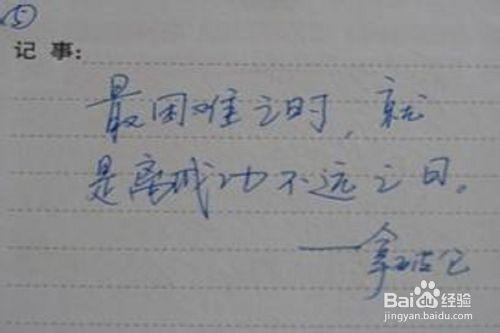 ⑤
记事:
最困难之时，就
是离成功不远之日。
——拿破仑
Bai度经验
jingyan.baidu.com